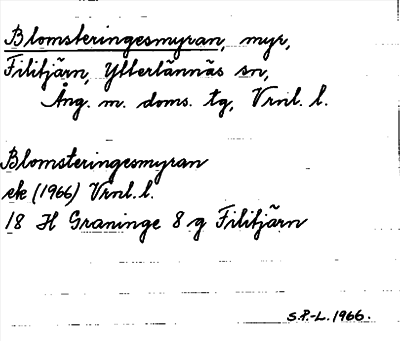 Blomsteringesmyran, myr,
Filitjärn, Ytterlännäs sn,
Ång. m. doms. tg, Vrnl. l.
Blomsteringesmyran
ek (1966) Vrnl. l.
18 H Graninge 8 g Filitjärn
S.P.-L. 1966.